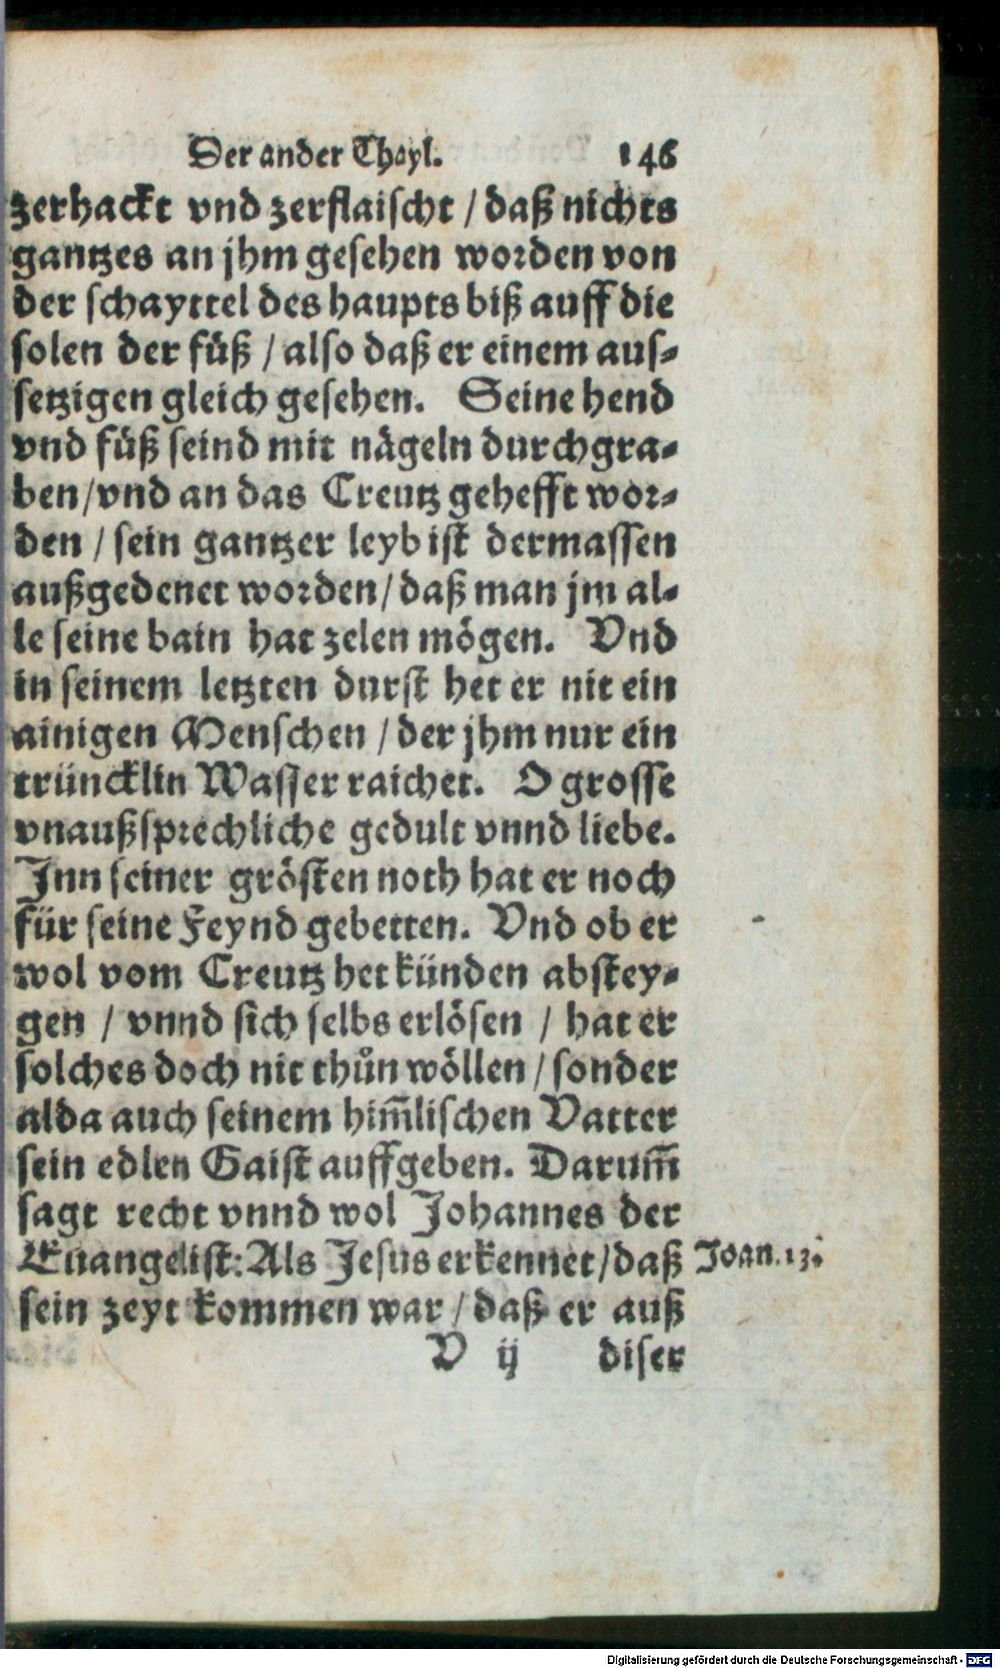 Der ander Thayl. 146
zerhackt vnd zerflaischt / daß nichts
gantzes an jhm gesehen worden von
der schayttel des haupts biß auff die
solen der füß / also daß er einem aus-
setzigen gleich gesehen. Seine hend
vnd füß seind mit nägeln durchgra-
ben/vnd an das Creutz gehefft wor-
den / sein gantzer leyb ist dermassen
außgedenet worden/daß man jm al-
le seine bain hat zelen mögen. Vnd
in seinem letzten durst het er nit ein
ainigen Menschen / der jhm nur ein
trüncklin Wasser raichet. O grosse
vnaußsprechliche gedult vnnd liebe.
Jnn seiner grösten noth hat er noch
für seine Feynd gebetten. Vnd ob er
wol vom Creutz het künden abstey-
gen / vnnd sich selbs erlösen / hat er
solches doch nit thůn wöllen / sonder
alda auch seinem him̃lischen Vatter
sein edlen Gaist auffgeben. Darum̃
sagt recht vnnd wol Johannes der
Euangelist: Als Jesus erkennet/daß Joan. 13.
sein zeyt kommen war / daß er auß
V ij diser
Digitalisierung gefördert durch die Deutsche Forschungsgemeinschaft - DFG